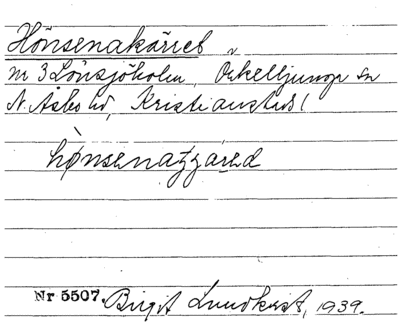 Hönsenakärret
nr 3 Lönsjöholm, Örkelljunga sn
N. Åsbo hd, Kristianstads l
Nr 5507. Birgit Lundkvist, 1939.